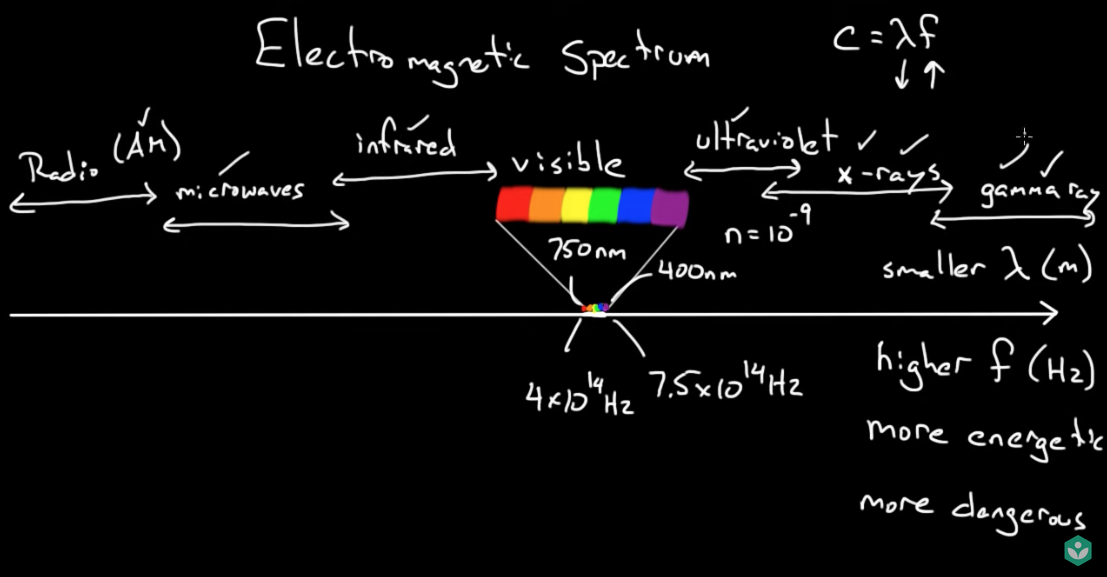 Electromagnetic Spectrum
c = λf
↓ ↑
Radio (AM)
microwaves
infrared
visible
ultraviolet
x-rays
gamma ray
n = 10⁻⁹
750nm
400nm
smaller λ (m)
4x10¹⁴Hz
7.5x10¹⁴Hz
higher f (Hz)
more energetic
more dangerous